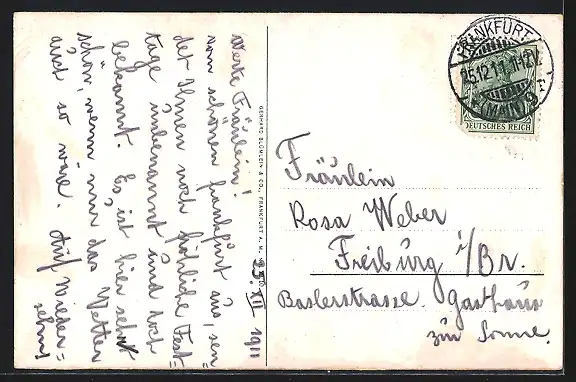 Werte Fräulein!
vom schönen Frankfurt aus, sen=
det Ihnen noch fröhliche Fest=
tage unbenannt und doch
bekannt. Es ist hier sehr
schön, wenn nur das Wetter
auch so wäre. Auf Wieder=
sehns
25. XII 1911
GERHARD BLÜMLEIN & CO., FRANKFURT A. M.
FRANKFURT
25.12.11. 11-12V.
(MAIN) 9
DEUTSCHES REICH
Fräulein
Rosa Weber
Freiburg i/Br.
Baslerstrasse. Gasthaus
zur Sonne.